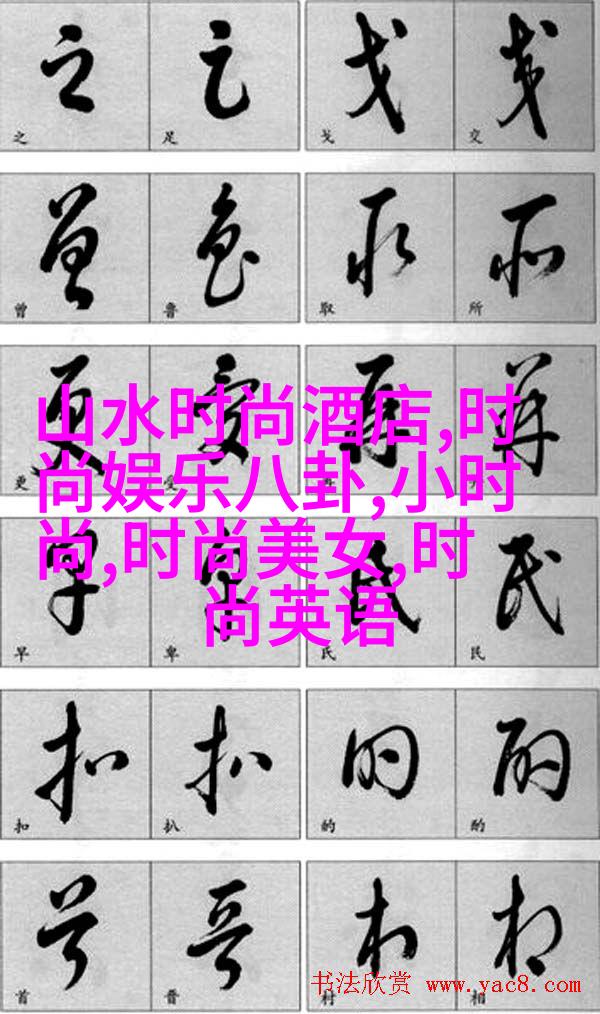 之 足 戈 交
曾 鲁 取 所
更 受
山水时尚酒店,时
尚娱乐八卦,小时
尚,时尚美女,时
尚英语
早 卑 氏 民
扣 扒 的 酌
首 晋 村 相
书法欣赏 www.yac8.com